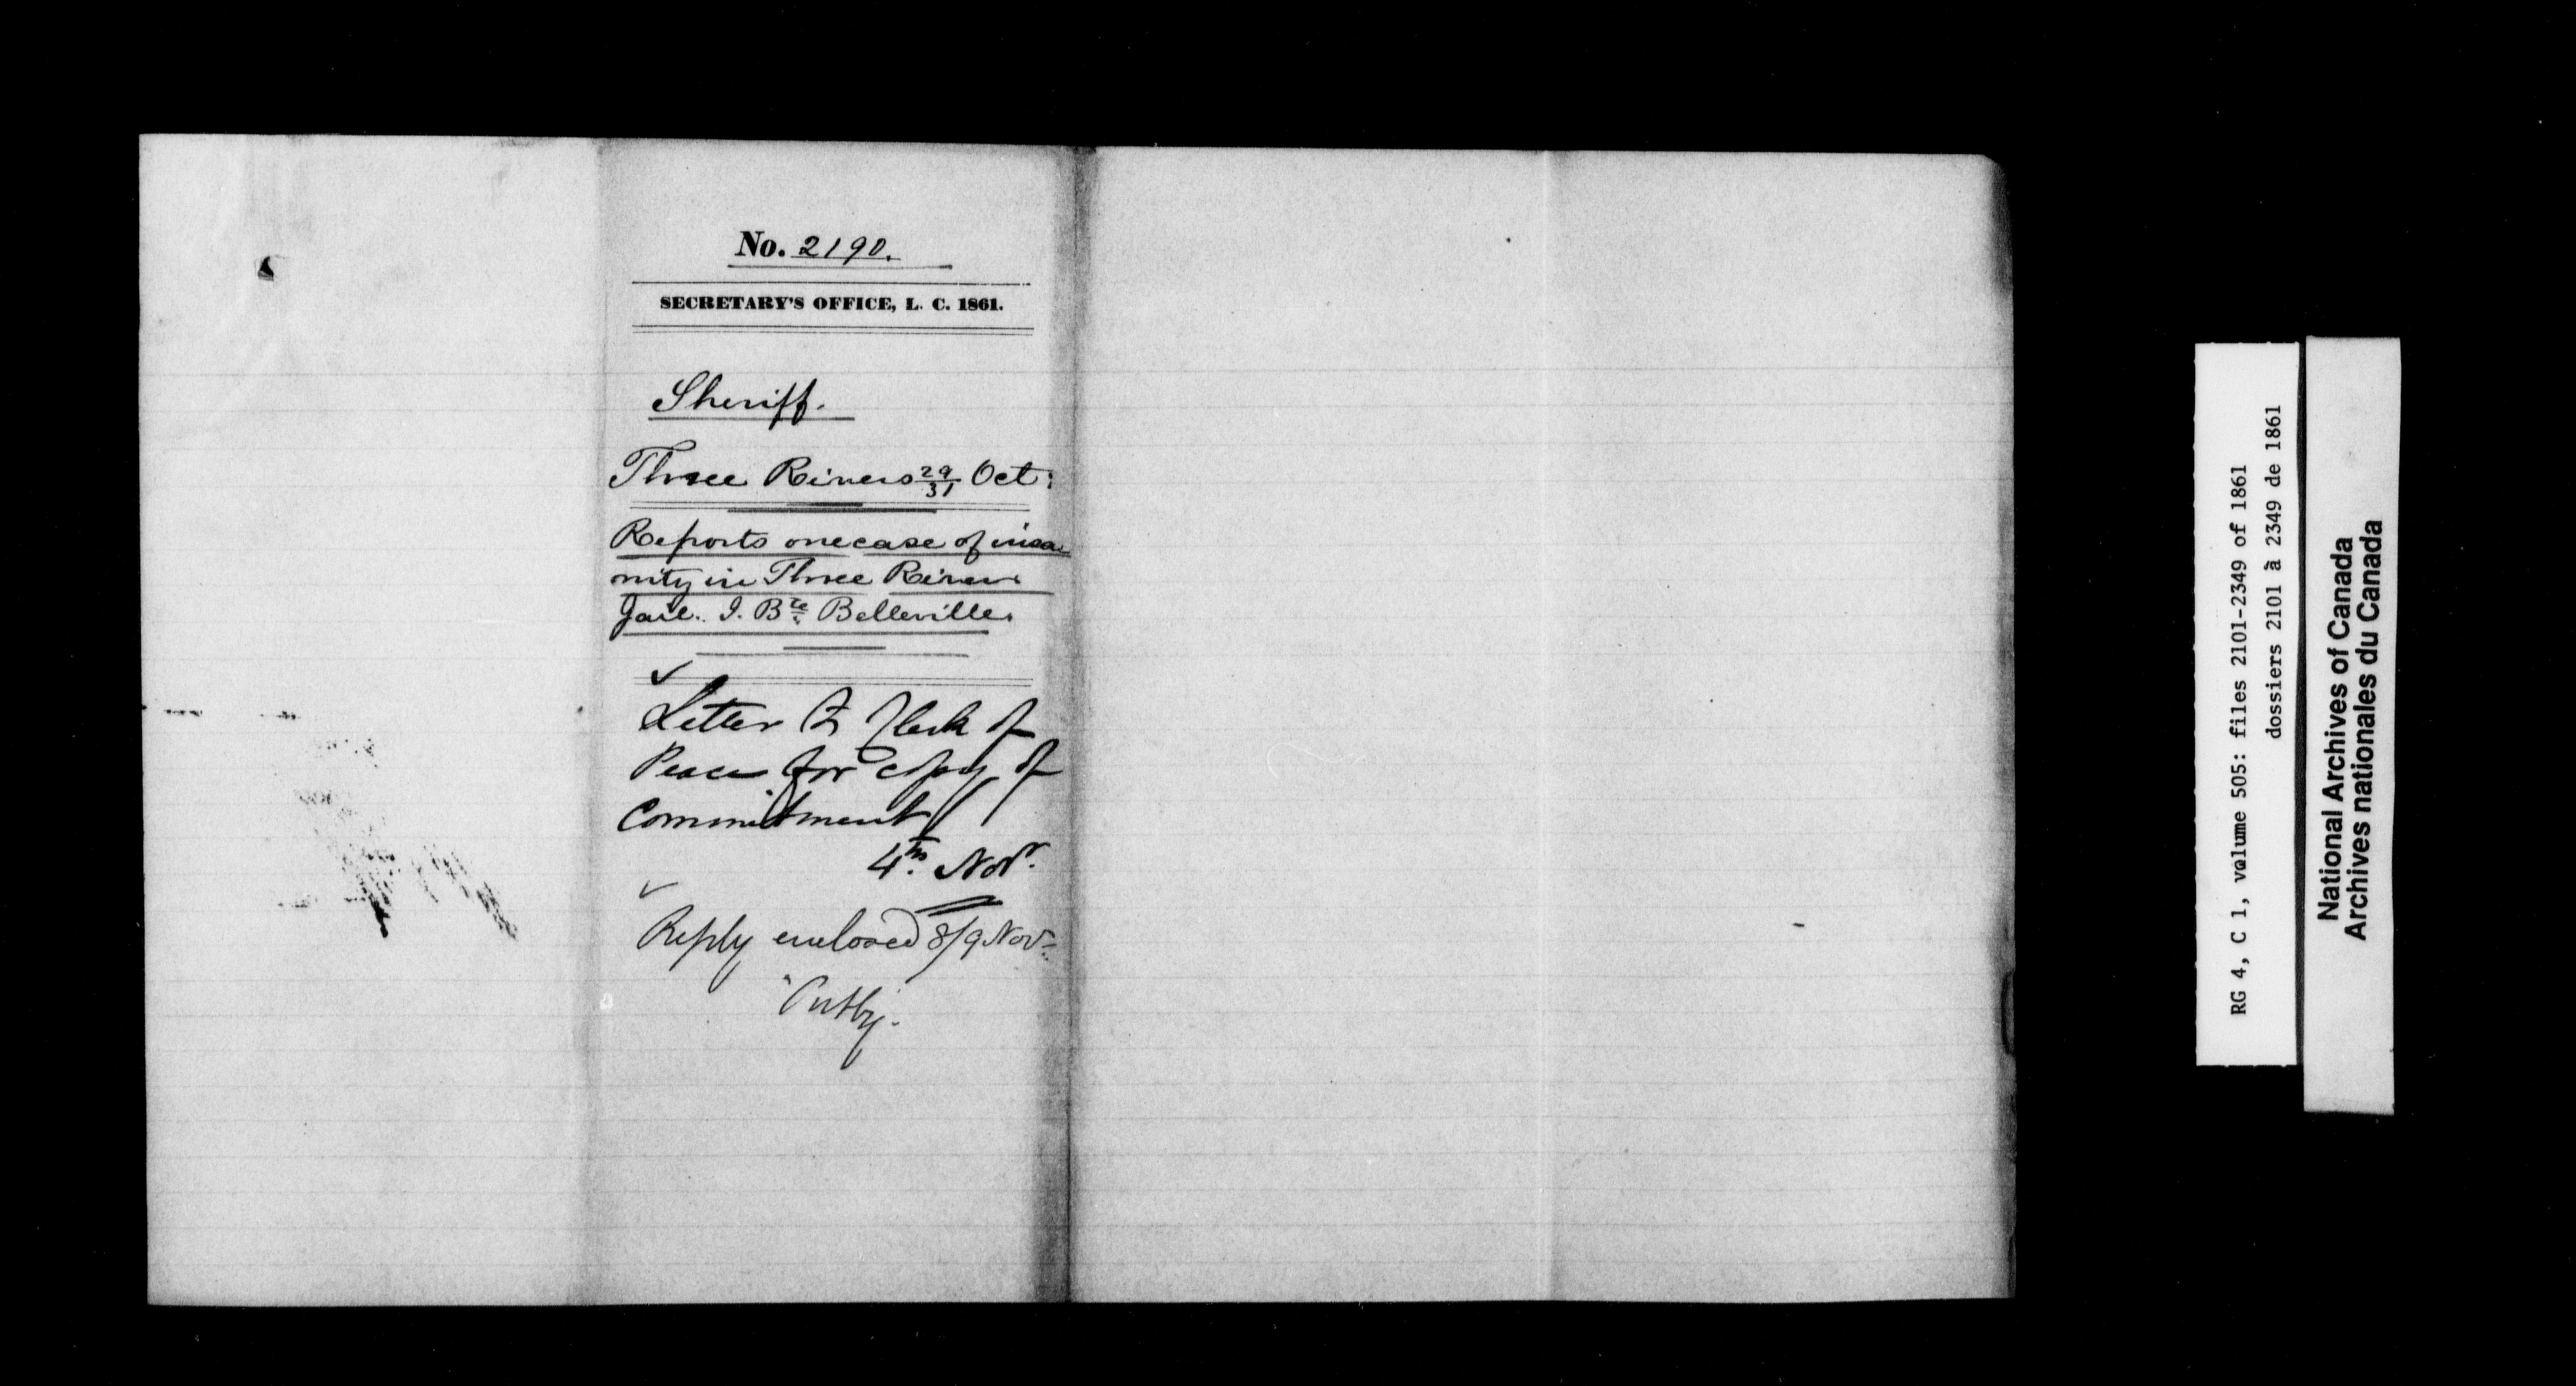 No. 2190.
SECRETARY'S OFFICE, L. C. 1861.
Sheriff.
Three Rivers 29/31 Oct:
Reports one case of insa
nity in Three Rivers
Gaol. J. Bte Belleville.
Letter to Clerk of
Peace for copy of
Commitment
4th Novr.
Reply enclosed 8/9 Novr.
RG 4, C 1, volume 505: files 2101-2349 of 1861
dossiers 2101 à 2349 de 1861
National Archives of Canada
Archives nationales du Canada